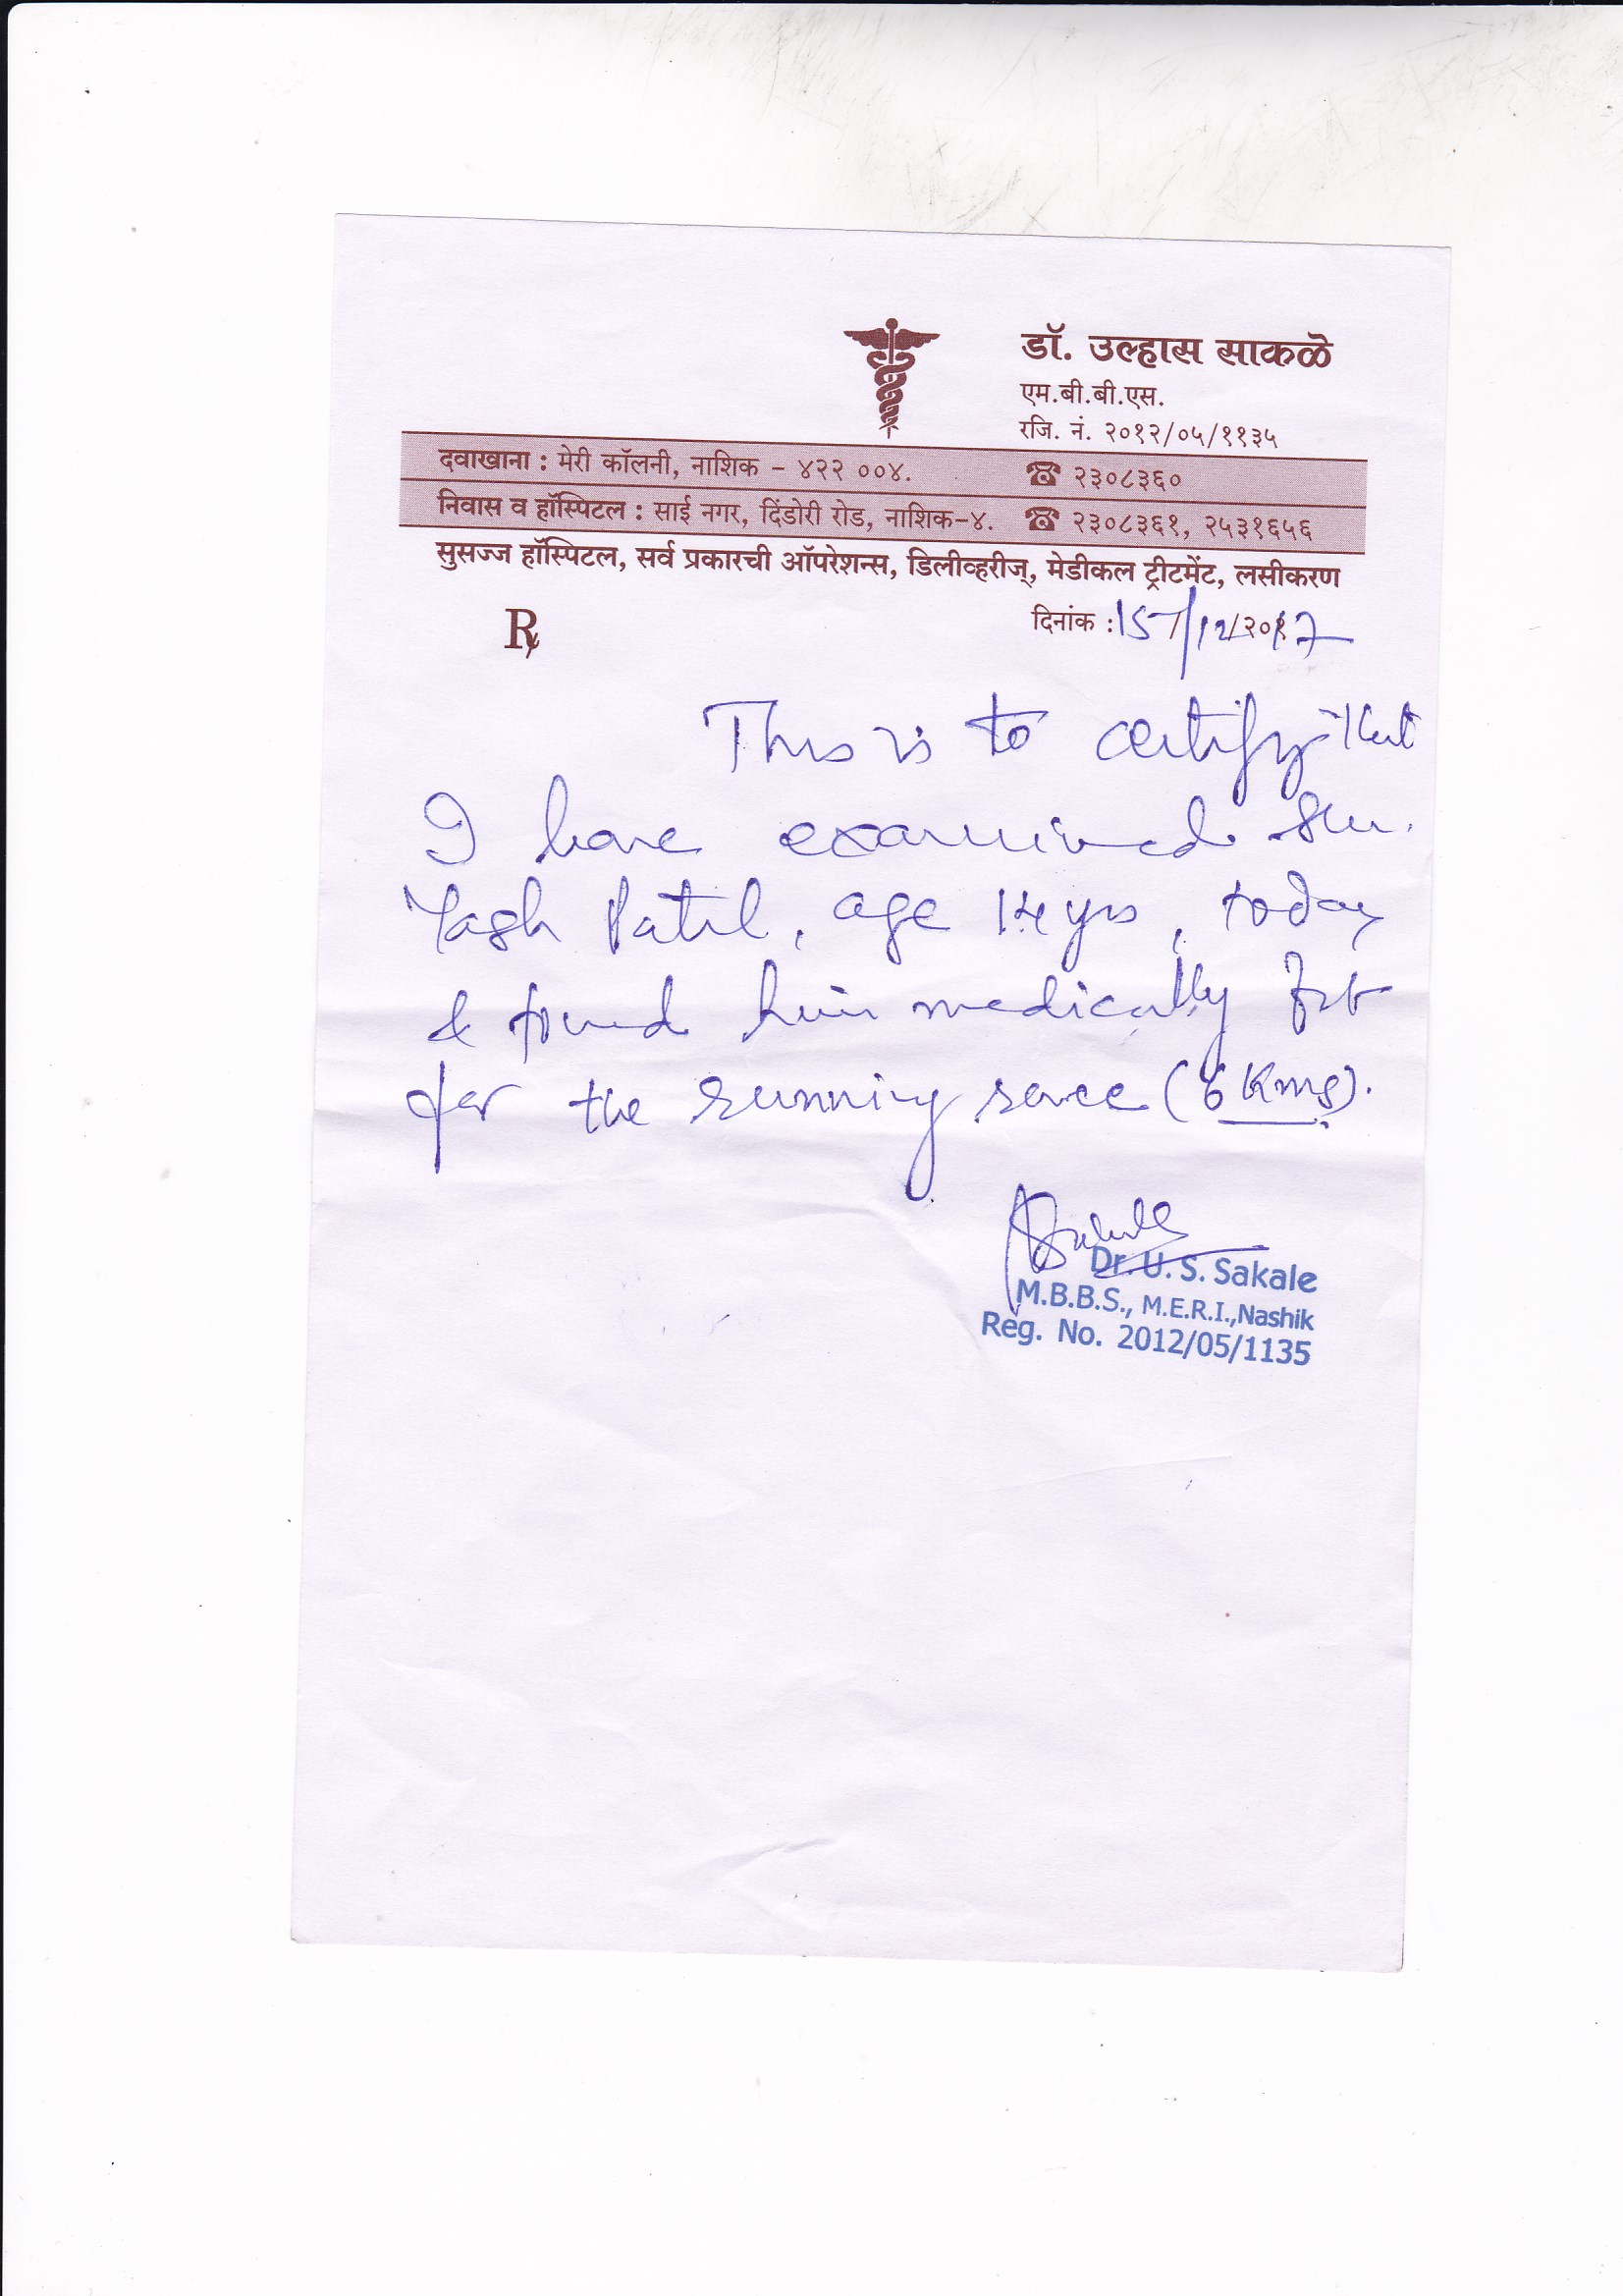 डॉ. उल्हास साकळे
एम.बी.बी.एस.
रजि. नं. २०१२/०५/११३५
दवाखाना : मेरी कॉलनी, नाशिक - ४२२ ००४. ☎ २३०८३६०
निवास व हॉस्पिटल : साई नगर, दिंडोरी रोड, नाशिक-४. ☎ २३०८३६१, २५३१६५६
सुसज्ज हॉस्पिटल, सर्व प्रकारची ऑपरेशन्स, डिलीव्हरीज्, मेडीकल ट्रीटमेंट, लसीकरण
℞ दिनांक : 15/12/२०17
This is to certify that
I have examined Shri.
Yash Patil, age 14 yrs, today
& found him medically fit
for the running race (6 Kms).
Sakale
Dr. U. S. Sakale
M.B.B.S., M.E.R.I.,Nashik
Reg. No. 2012/05/1135